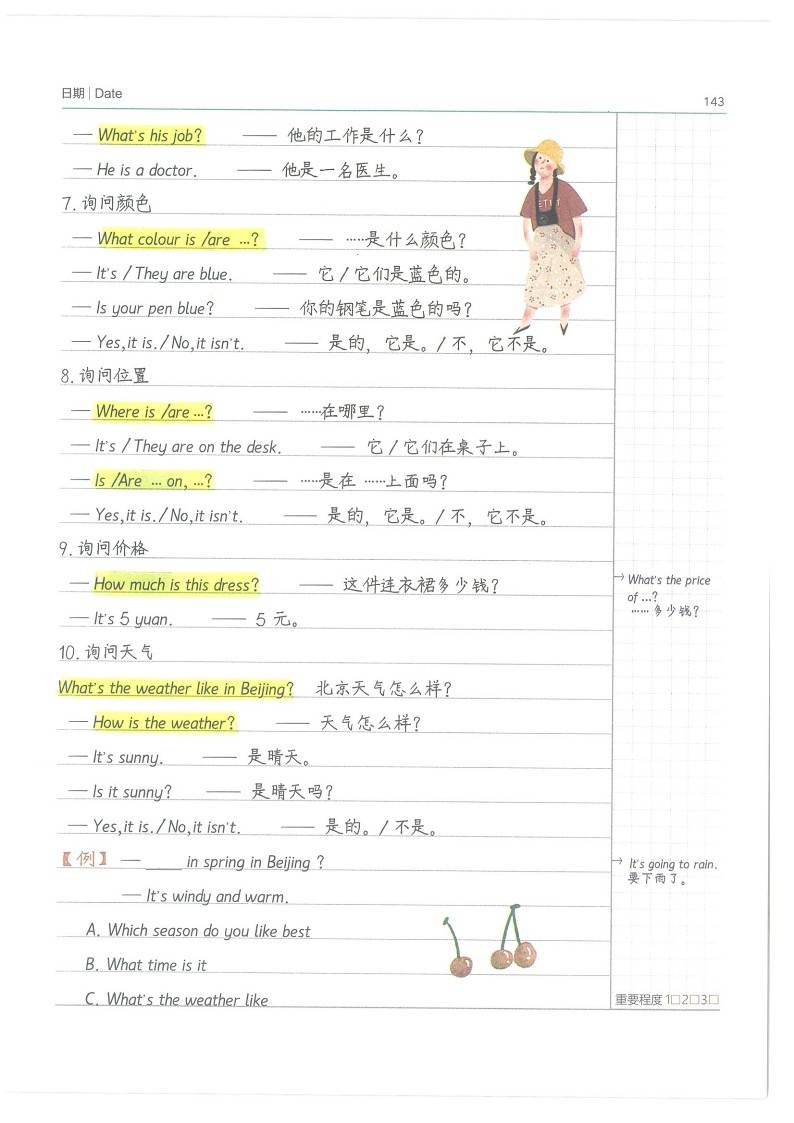 日期 | Date
143
— What's his job? —— 他的工作是什么?
— He is a doctor. —— 他是一名医生。
7. 询问颜色
— What colour is /are ...? —— ……是什么颜色?
— It's / They are blue. —— 它 / 它们是蓝色的。
— Is your pen blue? —— 你的钢笔是蓝色的吗?
— Yes,it is. / No,it isn't. —— 是的，它是。/ 不，它不是。
8. 询问位置
— Where is /are ...? —— ……在哪里?
— It's / They are on the desk. —— 它 / 它们在桌子上。
— Is /Are ... on, ...? —— ……是在 ……上面吗?
— Yes,it is. / No,it isn't. —— 是的，它是。/ 不，它不是。
9. 询问价格
— How much is this dress? —— 这件连衣裙多少钱?
— It's 5 yuan. —— 5 元。
10. 询问天气
What's the weather like in Beijing? 北京天气怎么样?
— How is the weather? —— 天气怎么样?
— It's sunny. —— 是晴天。
— Is it sunny? —— 是晴天吗?
— Yes,it is. / No,it isn't. —— 是的。/ 不是。
【例】 — ____ in spring in Beijing ?
— It's windy and warm.
A. Which season do you like best
B. What time is it
C. What's the weather like
→ What's the price
of ...?
…… 多少钱?
→ It's going to rain.
要下雨了。
重要程度 1□2□3□